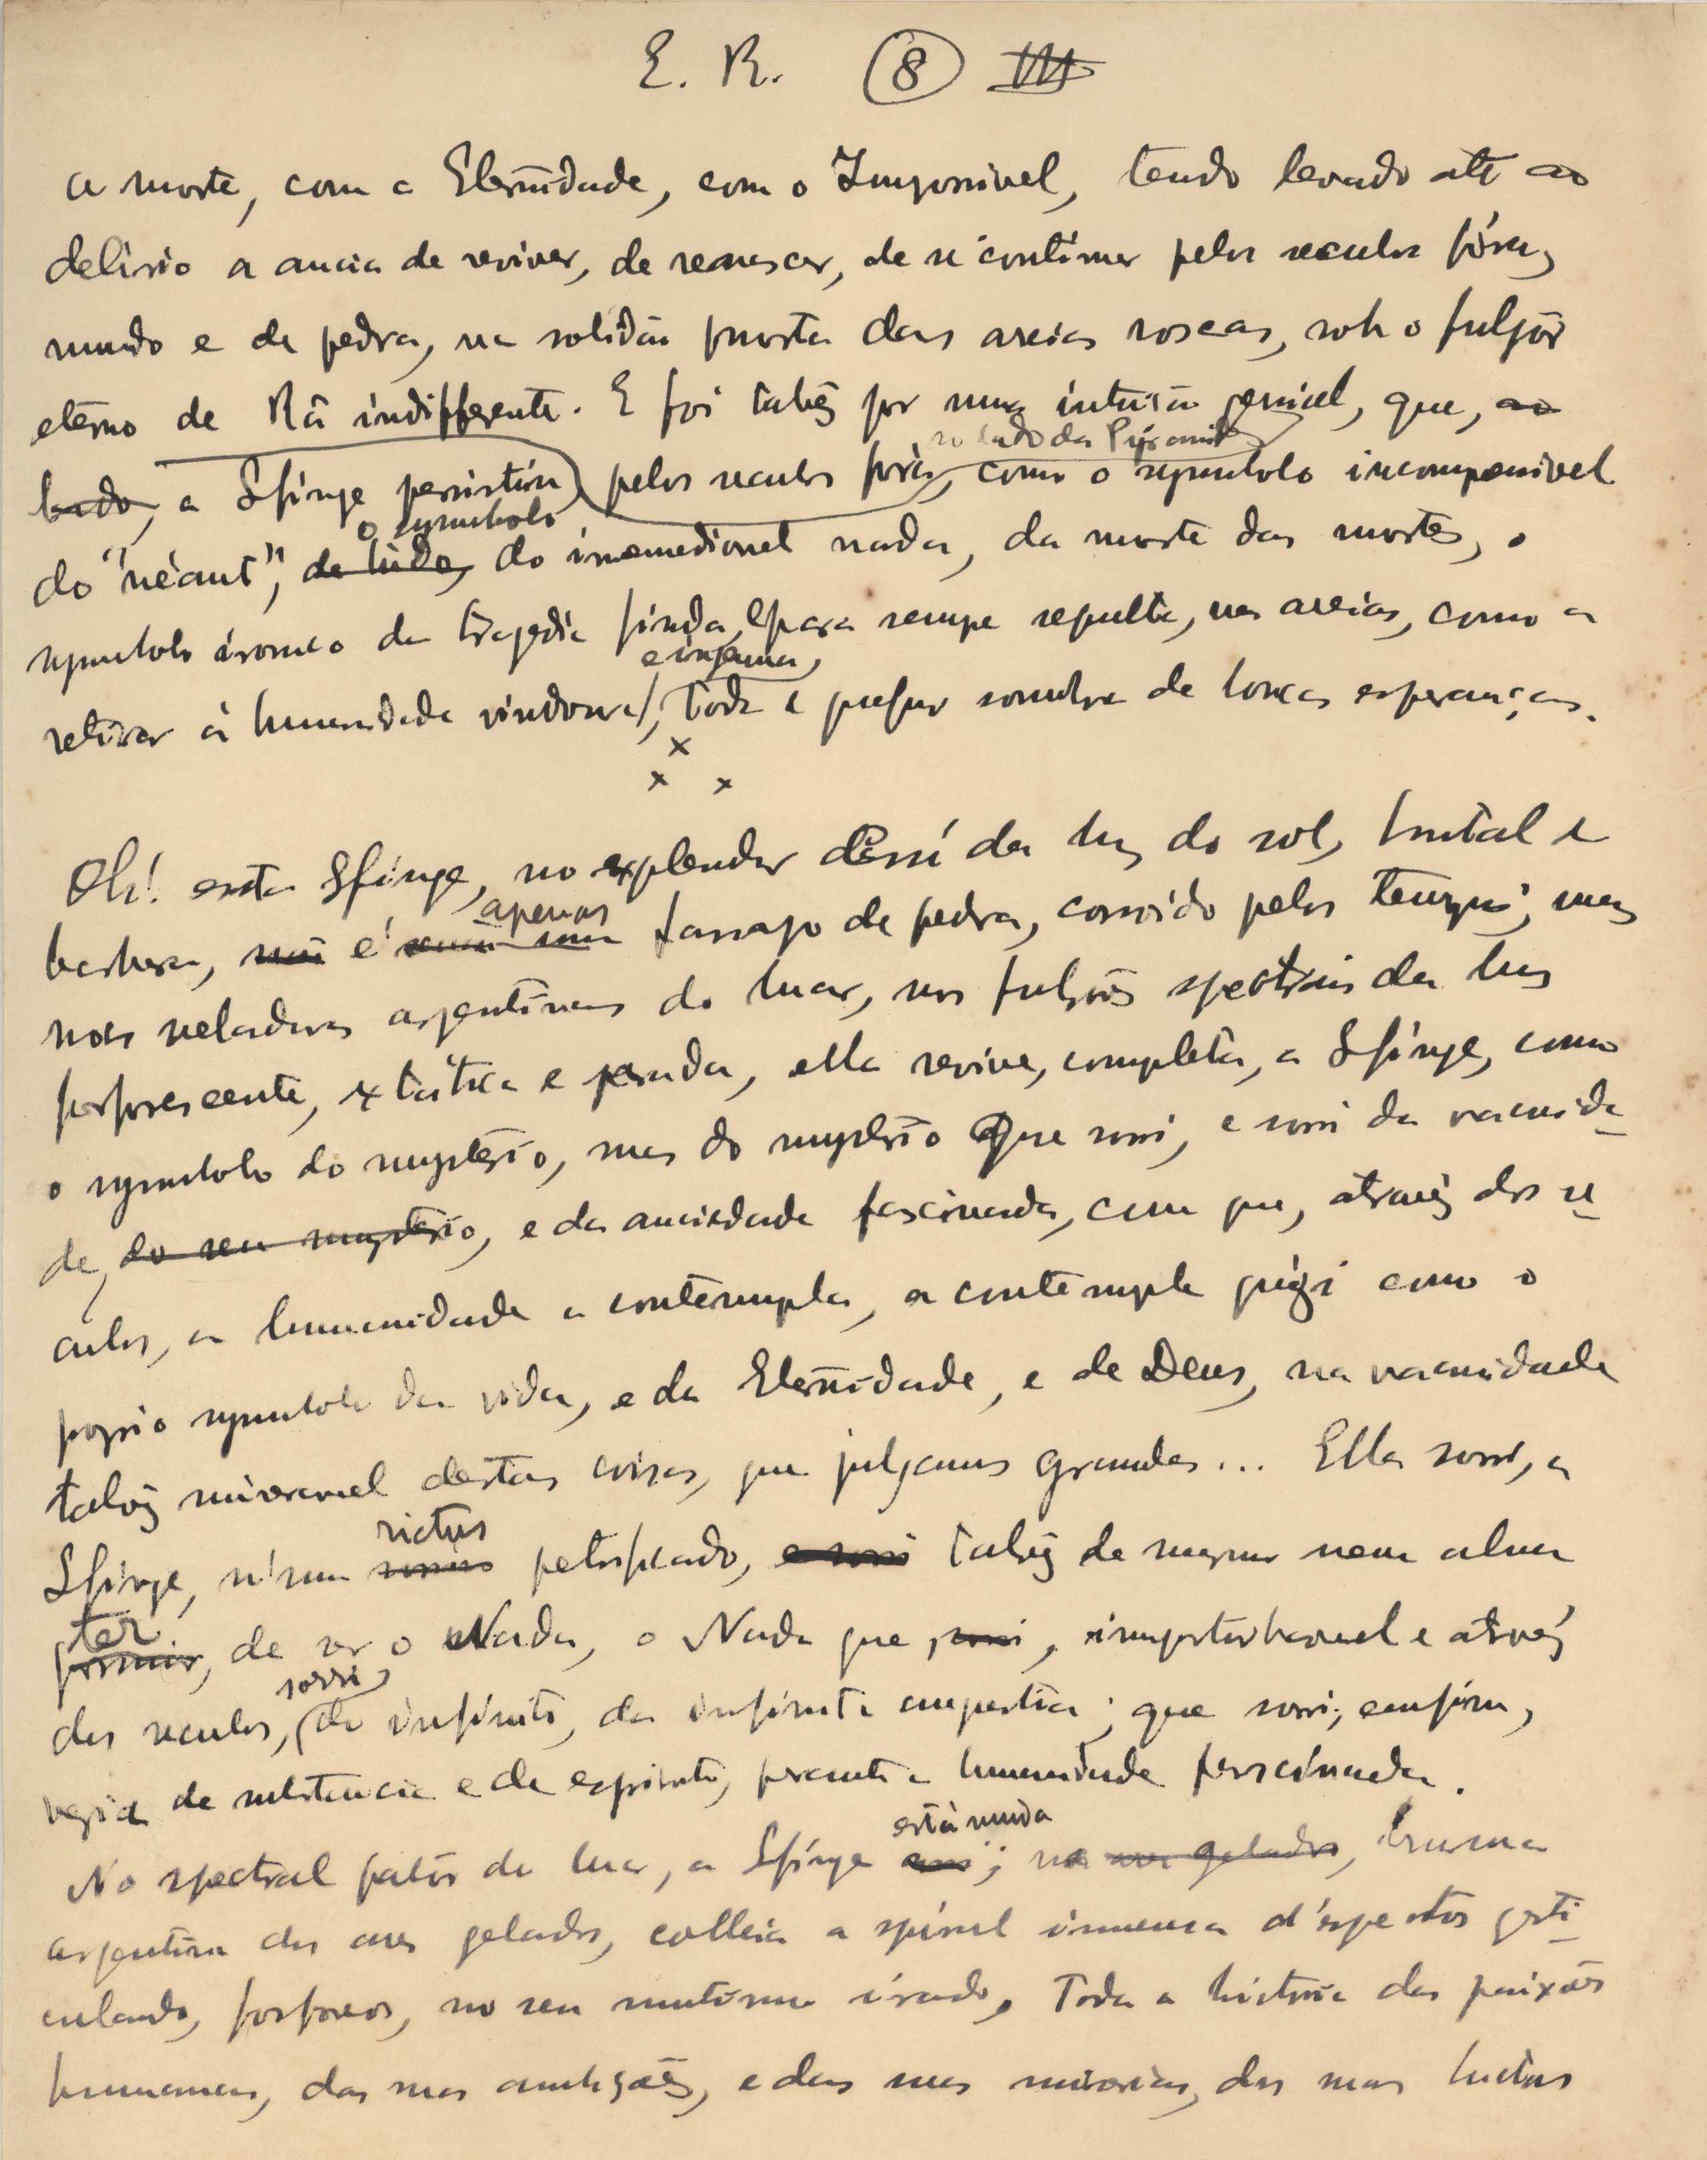 E. R. 8
a morte, com a Eternidade, com o Impossivel, tendo levado até ao
delirio a ancia de reviver, de renascer, de se continuar pelos seculos fóra,
mundo e de pedra, na solidão morta das areias roseas, sob o fulgôr
eterno de Râ indifferente. E foi talvez por uma intuição genial, que, ao
ao lado da Pyramide
lado, a Sfinge persistiu pelos seculos fóra, como o symbolo incompassivel
o symbolo
do "néant", de tudo, do irremediavel nada, da morte das mortes, o
symbolo ironico da tragedia finda, e para sempre sepulta, nas areias, como a
e ingenua,
retirar á humanidade vindoura, toda e qualquer sombra de loucas esperanças.
x
x x
Oh! esta Sfinge, no explendor d'essa da luz do sol, brutal e
apenas
barbara, não é senão um farrapo de pedra, corroido pelos tempos; mas
nas veladuras argentinas do luar, nos fulgôres spectrais da luz
fosforescente, extatica e parada, ella revive, completa, a Sfinge, como
o symbolo do mysterio, mas do mysterio que sorri, e sorri da vacuida-
de, do seu mysterio, e da anciedade fascinada, com que, através dos se-
culos, a humanidade a contempla, a contempla quasi como o
proprio symbolo da vida, e da Eternidade, e de Deus, na vacuidade
talvez miseravel destas coisas, que julgamos grandes... Ella sorri, a
rictus
Sfinge, n'um sorriso petrificado, e sorri talvez de mesmo nem alma
ter
possuir, de ser o Nada, o Nada que sorri, imperturbavel e através
sorri
dos seculos, do infinito, da infinita amperdia; que sorri, emfim,
vasia de substancia e de espirito, perante a humanidade fascinada.
está muda
No spectral palôr do luar, a Sfinge sorri; na nos gelados, bruma
argentina dos ares gelados, colleia a spiral immensa d'espectros gesti-
culando, fosforeos, no seu mutismo irado. Toda a historia das paixões
humanas, das suas ambições, e das suas miserias, das suas luctas